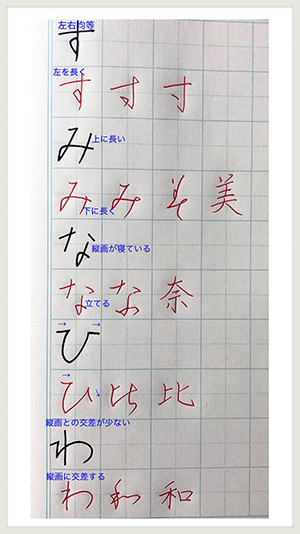 左右均等
す
左を長く
す す 寸
み 上に長い
み み 美 美
下に長く
な 縦画が寝ている
な な 奈
立てる
→ →
ひ
→
ひ 比 比
縦画との交差が少ない
わ
縦画に交差する
わ 和 和